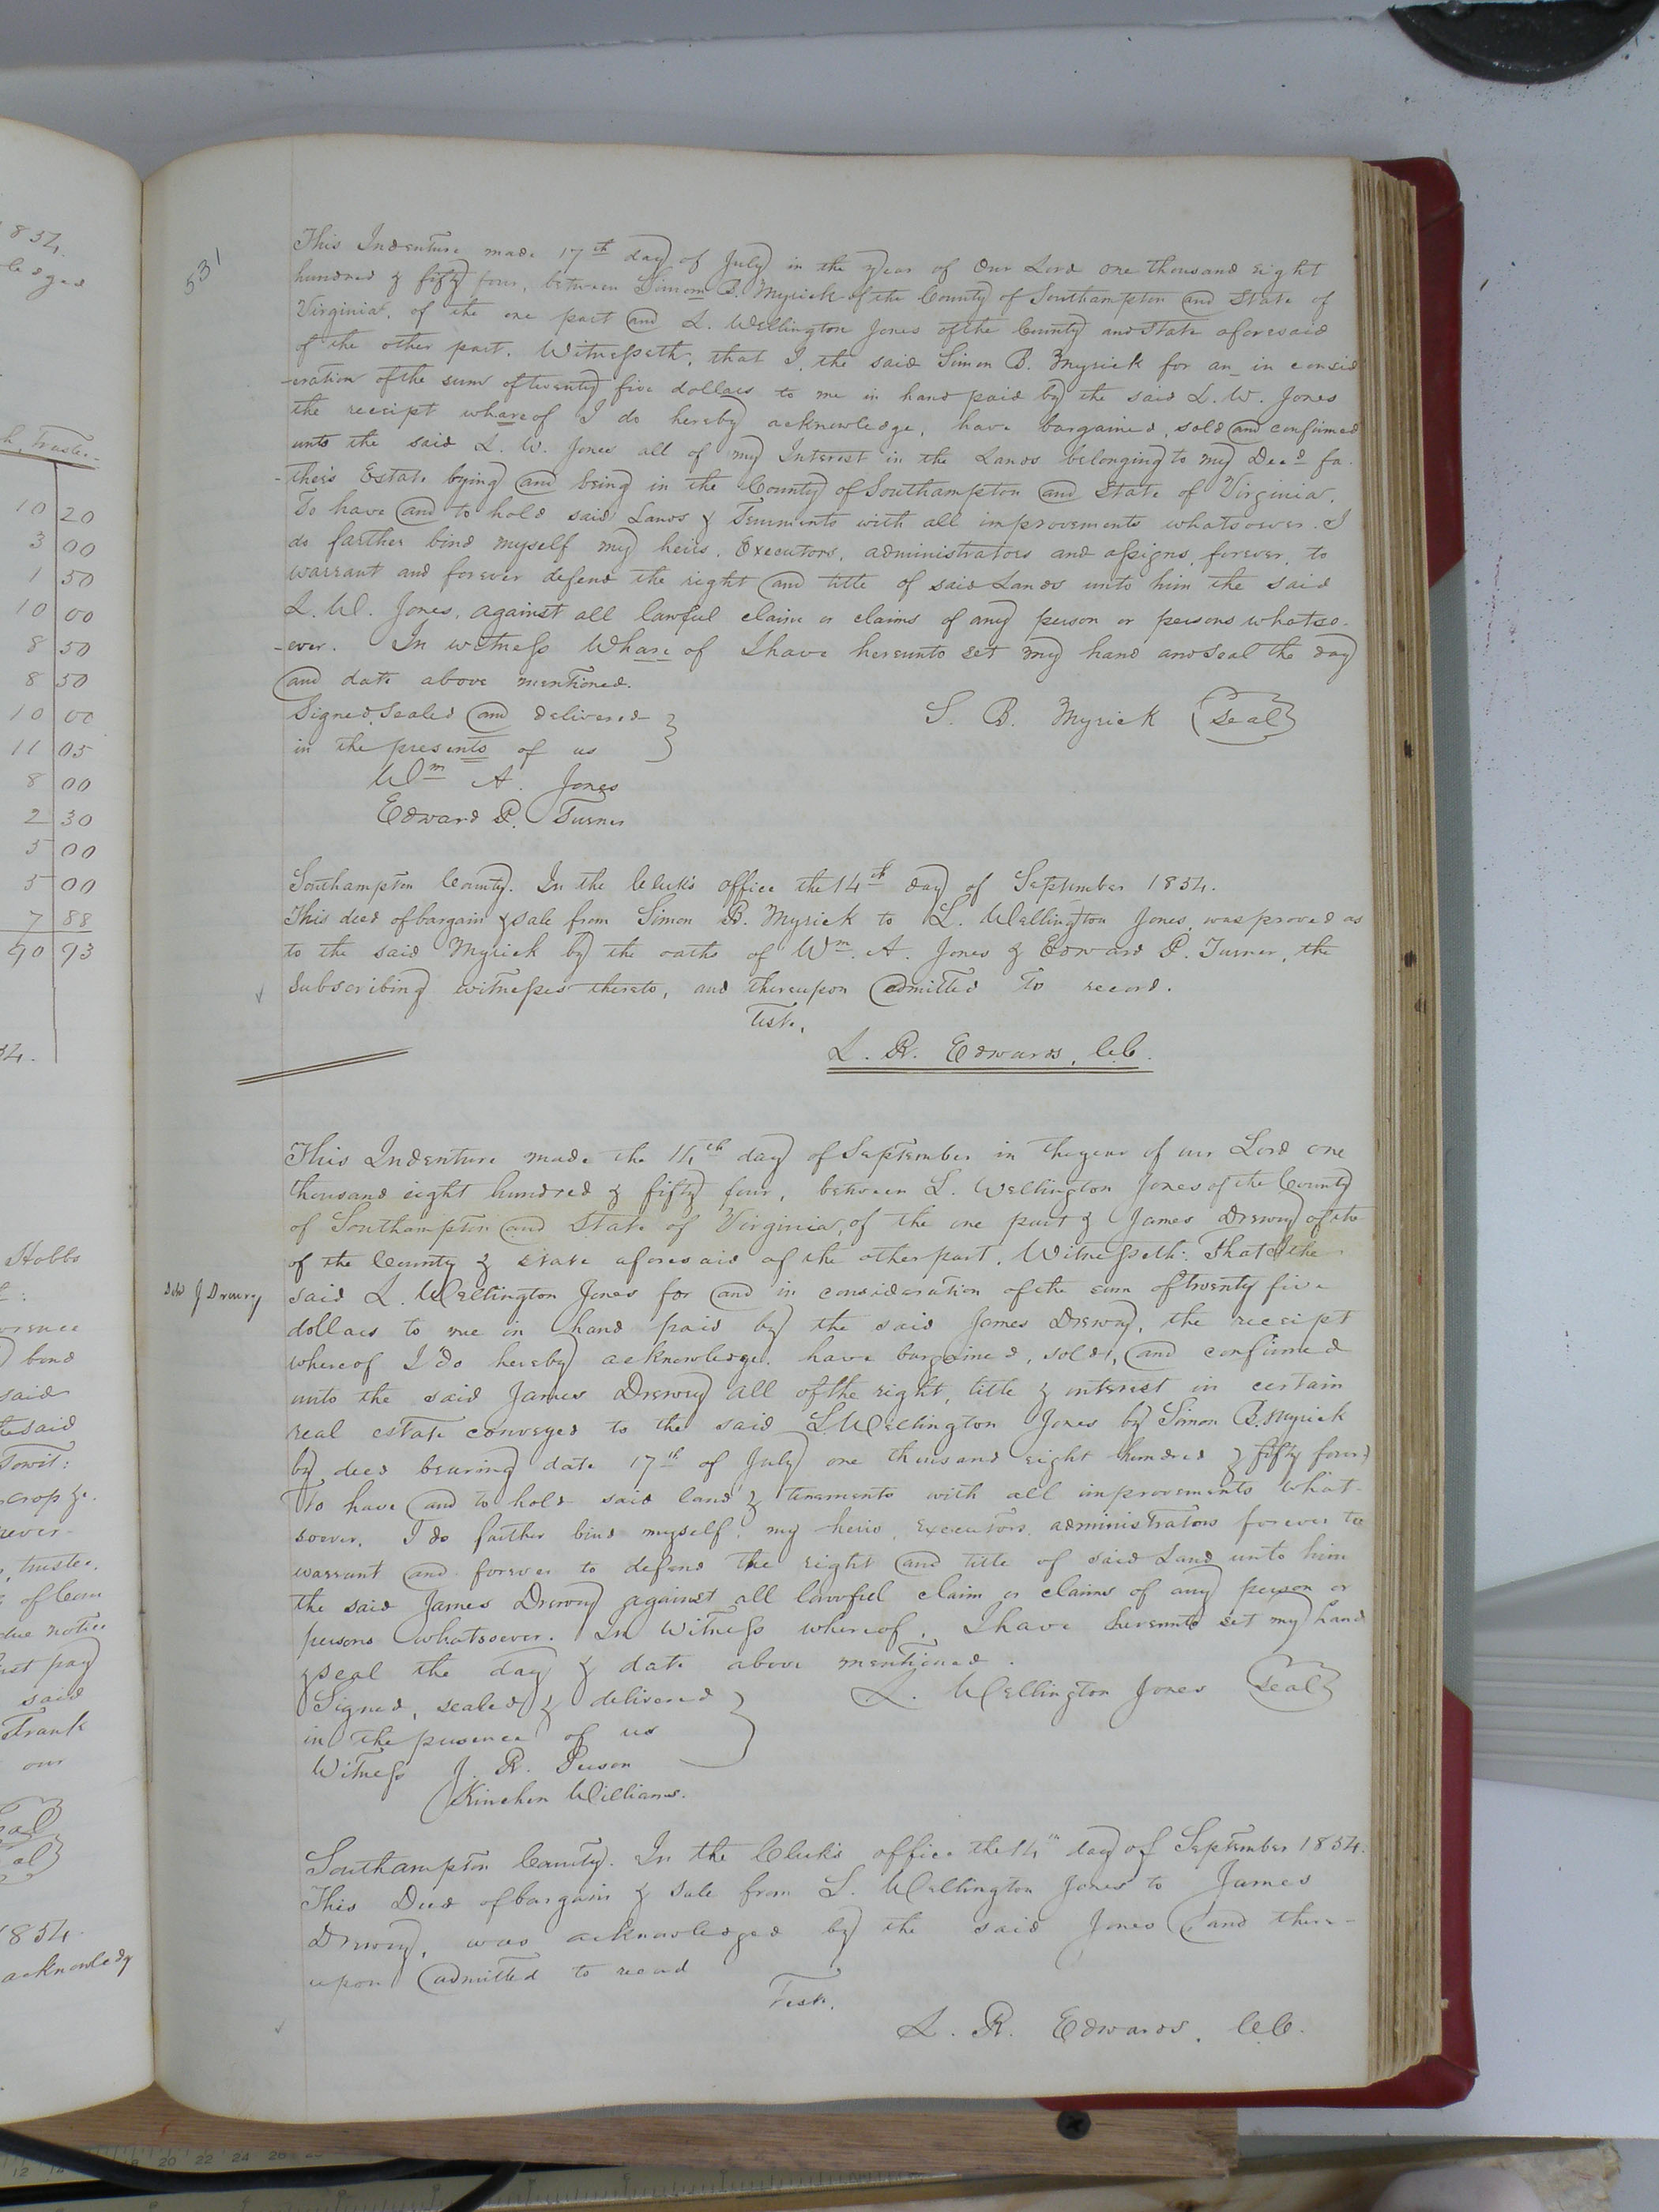 531
This Indenture made 17th day of July in the year of Our Lord one thousand eight
hundred & fifty four, between Simon B. Myrick of the County of Southampton and State of
Virginia, of the one part and L. Wellington Jones of the County and State aforesaid
of the other part. Witnesseth, that I, the said Simon B. Myrick for an_ in consid
-eration of the sum of twenty five dollars to me in hand paid by the said L. W. Jones
the receipt whareof I do hereby acknowledge, have bargained, sold and confirmed
unto the said L. W. Jones all of my Interest in the Lands belonging to my Decd fa-
-thers Estate lying and being in the County of Southampton and State of Virginia.
To have and to hold said Lands & Tenements with all improvements whatsoever. I
do farther bind myself my heirs, Executors, administrators and assigns, forever, to
warrant and forever defend the right and title of said Lands unto him the said
L. W. Jones, against all lawful claim or claims of any person or persons whatso-
-ever. In witness Whare of I have hereunto set my hand and seal the day
and date above mentioned.
Signed, Sealed and delivered
S. B. Myrick (Seal)
in the presents of us
Wm A. Jones
Edward P. Turner
Southampton County. In the Clerk's office the 14th day of September 1854.
This deed of bargain & sale from Simon B. Myrick to L. Wellington Jones, was proved as
to the said Myrick by the oaths of Wm. A. Jones & Edward P. Turner, the
Subscribing witnesses thereto, and thereupon admitted to record.
Test.
L. R. Edwards, C.C.
This Indenture made the 14th day of September in the year of our Lord one
thousand eight hundred & fifty four, between L. Wellington Jones of the County
of Southampton and State of Virginia, of the one part & James Drewry of the
of the County & state aforesaid of the other part. Witnesseth: That I the
J Drewry
said L. Wellington Jones for and in consideration of the sum of twenty five
dollars to me in hand paid by the said James Drewry, the receipt
whereof I do hereby acknowledge. have bargained, sold, and confirmed
unto the said James Drewry all of the right, title & interest in certain
real estate conveyed to the said L Wellington Jones by Simon B. Myrick
by deed bearing date 17th of July one thousand eight hundred & fifty four
To have and to hold said land & tenements with all improvements what-
soever. I do farther bind myself, my heirs, executors, administrators forever to
warrant and forever to defend the right and title of said Land unto him
the said James Drewry against all lawful claim or claims of any person or
persons whatsoever. In Witness whereof, I have hereunto set my hand
& seal the day & date above mentioned.
Signed, sealed & delivered
L. Wellington Jones (Seal)
in the presence of us
Witness J. R. Person
Kinchen Williams.
Southampton County. In the Clerk's office the 14th day of September 1854.
This Deed of bargain & sale from L. Wellington Jones to James
Drewry, was acknowledged by the said Jones and there-
upon admitted to record
Test.
L. R. Edwards, C.C.
10 20
3 00
1 50
10 00
8 50
8 50
10 00
11 05
8 00
2 30
5 00
5 00
7 88
90 93
Hobbs
bond
said
said
Towit:
crop &c.
trustee.
due notice
pay
said
Frank
our
1854
acknowledg